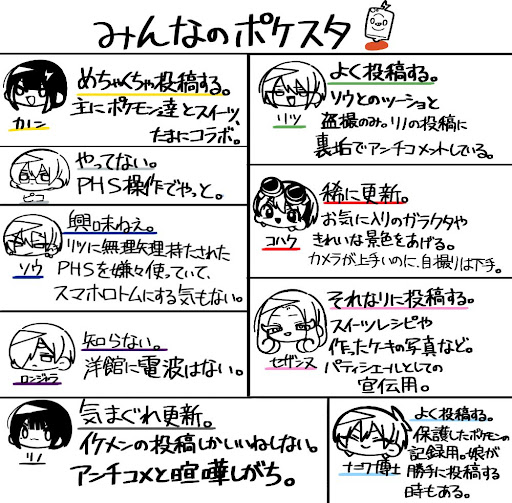 みんなのポケスタ
めちゃくちゃ投稿する。
主にポケモン達とスイーツ、
たまにコラボ。
カノン
やってない。
PHS操作でやっと。
ピコ
興味ねえ。
リツに無理矢理持たされた
PHSを嫌々使っていて、
スマホロトムにする気もない。
ソウ
知らない。
洋館に電波はない。
ロンジネラ
気まぐれ更新。
イケメンの投稿しかいいねしない。
アンチコメと喧嘩しがち。
リノ
よく投稿する。
ソウとのツーショと
盗撮のみ。リノの投稿に
裏垢でアンチコメントしている。
リツ
稀に更新。
お気に入りのガラクタや
きれいな景色をあげる。
カメラが上手いのに、自撮りは下手。
コハク
それなりに投稿する。
スイーツレシピや
作ったケーキの写真など。
パティシエールとしての
宣伝用。
セザンヌ
よく投稿する。
保護したポケモンの
記録用。娘が
勝手に投稿する
時もある。
博士